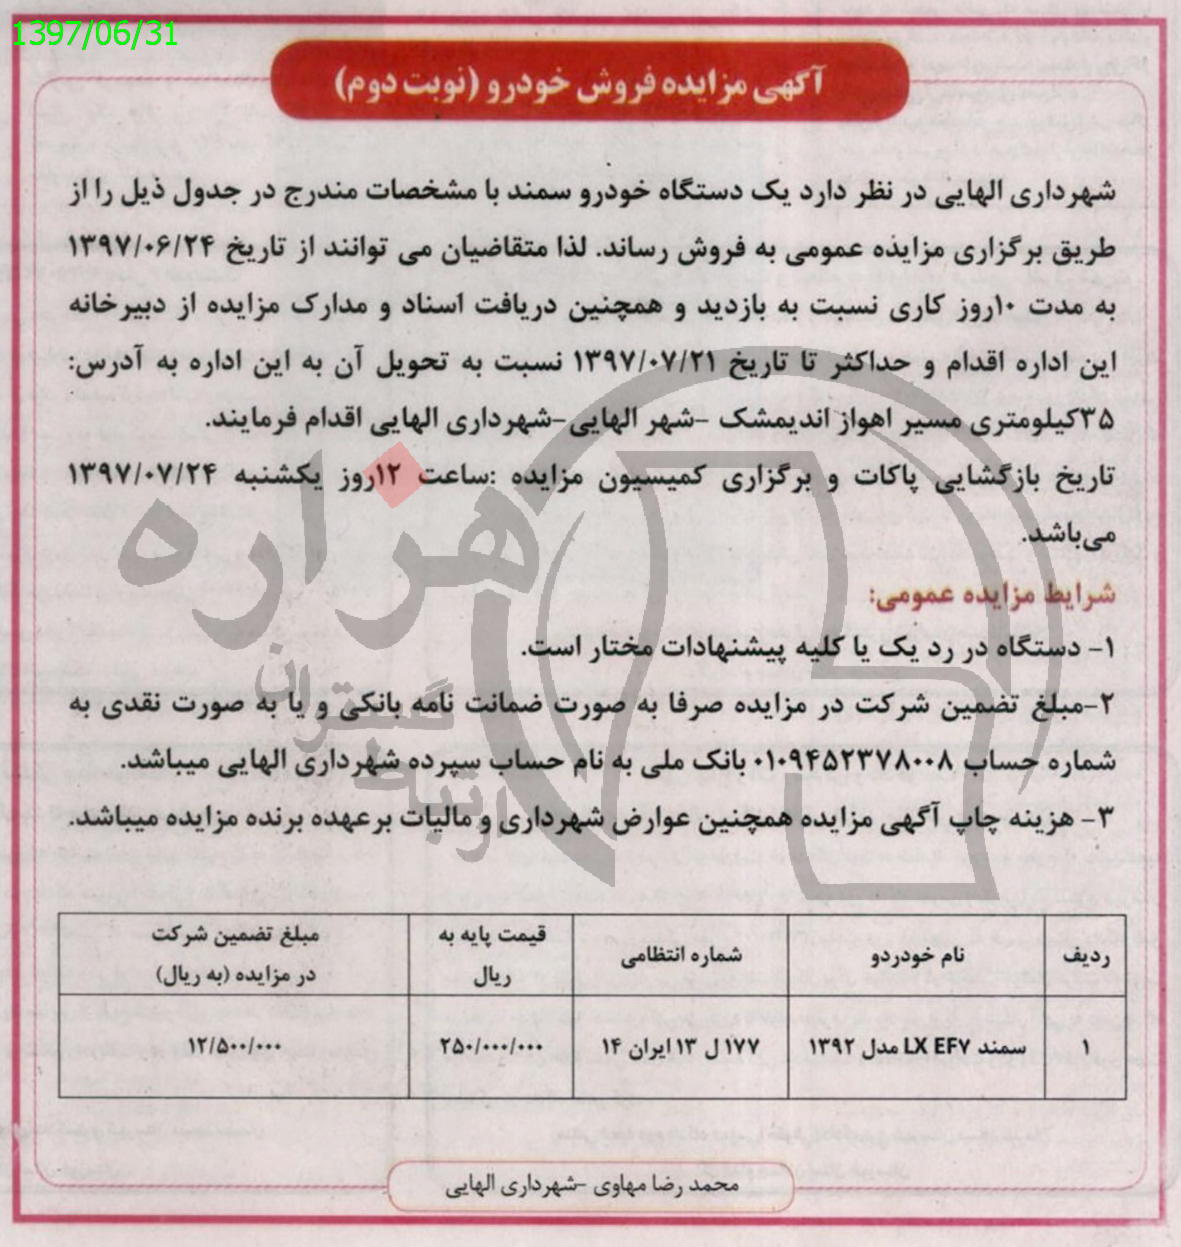 1397/06/31
آگهی مزایده فروش خودرو (نوبت دوم)
شهرداری الهایی در نظر دارد یک دستگاه خودرو سمند با مشخصات مندرج در جدول ذیل را از
طریق برگزاری مزایده عمومی به فروش رساند. لذا متقاضیان می توانند از تاریخ ۱۳۹۷/۰۶/۲۴
به مدت ۱۰روز کاری نسبت به بازدید و همچنین دریافت اسناد و مدارک مزایده از دبیرخانه
این اداره اقدام و حداکثر تا تاریخ ۱۳۹۷/۰۷/۲۱ نسبت به تحویل آن به این اداره به آدرس:
۳۵کیلومتری مسیر اهواز اندیمشک -شهر الهایی-شهرداری الهایی اقدام فرمایند.
تاریخ بازگشایی پاکات و برگزاری کمیسیون مزایده :ساعت ۱۲روز یکشنبه ۱۳۹۷/۰۷/۲۴
می‌باشد.
شرایط مزایده عمومی:
۱- دستگاه در رد یک یا کلیه پیشنهادات مختار است.
۲-مبلغ تضمین شرکت در مزایده صرفا به صورت ضمانت نامه بانکی و یا به صورت نقدی به
شماره حساب ۰۱۰۹۴۵۲۳۷۸۰۰۸ بانک ملی به نام حساب سپرده شهرداری الهایی میباشد.
۳- هزینه چاپ آگهی مزایده همچنین عوارض شهرداری و مالیات برعهده برنده مزایده میباشد.
هزاره
گستران
ارتباط
ردیف نام خودردو شماره انتظامی قیمت پایه به ریال مبلغ تضمین شرکت در مزایده (به ریال)
۱ سمند LX EF۷ مدل ۱۳۹۲ ۱۷۷ ل ۱۳ ایران ۱۴ ۲۵۰/۰۰۰/۰۰۰ ۱۲/۵۰۰/۰۰۰
محمد رضا مهاوی -شهرداری الهایی